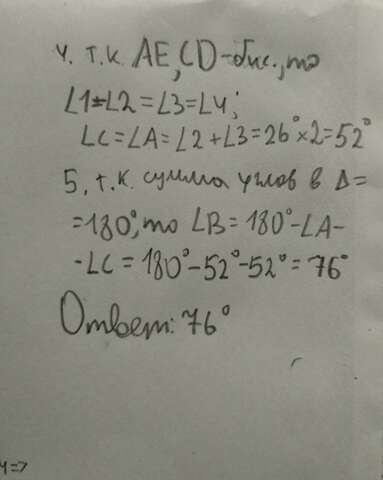 4. т.к. AE, CD-бис., то
∠1=∠2=∠3=∠4;
∠C=∠A=∠2+∠3=26°×2=52°
5, т.к. сумма углов в Δ=
=180°, то ∠B=180°-∠A-
-∠C=180°-52°-52°=76°
Ответ: 76°
4=>